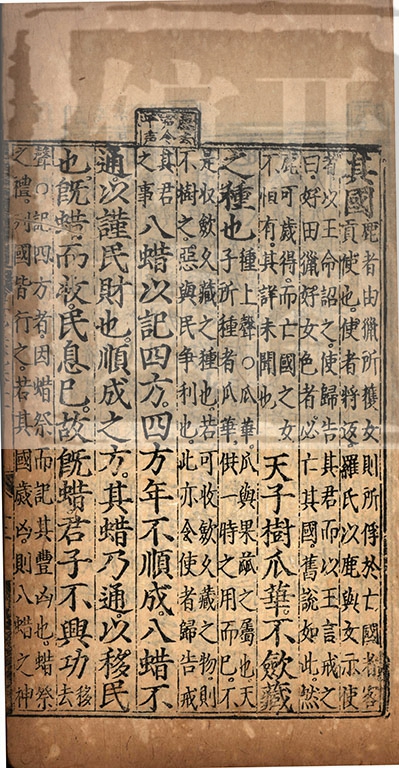 其國
鹿者由獵所獲女則所俘於亡國者客
貢使也使者將返羅氏以鹿與女示使
者以王命詔之使歸告其君而以王言戒之
曰好田獵好女色者必亡其國舊說如此然
鹿可歲得而亡國之女
不恒有其詳未聞也
天子樹瓜華不斂藏
之種也
種上聲○瓜華瓜與果蓏之屬也天
子所種者瓜華供一時之用而已不
是收斂久藏之種也若可收斂久藏之物則
不樹之惡與民爭利也此亦令使者歸告戒
其君
之事
八蜡以記四方四方年不順成八蜡不
通以謹民財也順成之方其蜡乃通以移民
也既蜡而收民息已故既蜡君子不興功
移
去
聲○記四方者因蜡祭而記其豐凶也蜡祭
之禮列國皆行之若其國歲凶則八蜡之神